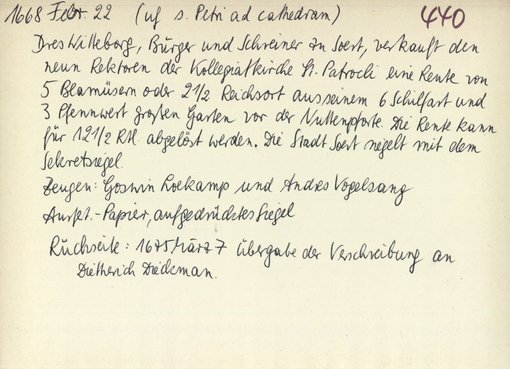 1668 Febr 22 (uf s. Petri ad cathedram) 440
Dres Willeborg, Bürger und Schreiner zu Soest, verkauft den
neun Rektoren der Kollegiatkirche St. Patrocli eine Rente von
5 Blamüsern oder 2 1/2 Reichsort aus seinem 6 Schilfart und
3 Pfennwert großen Garten vor der Nuttenpforte. Die Rente kann
für 12 1/2 Rtl. abgelöst werden. Die Stadt Soest siegelt mit dem
Sekretsiegel.
Zeugen: Goswin Loekamp und Andres Vogelsang
Ausfet.- Papier, aufgedrücktes Siegel
Rückseite: 1675 März 7 übergabe der Verschreibung an
Dietherich Diedeman.